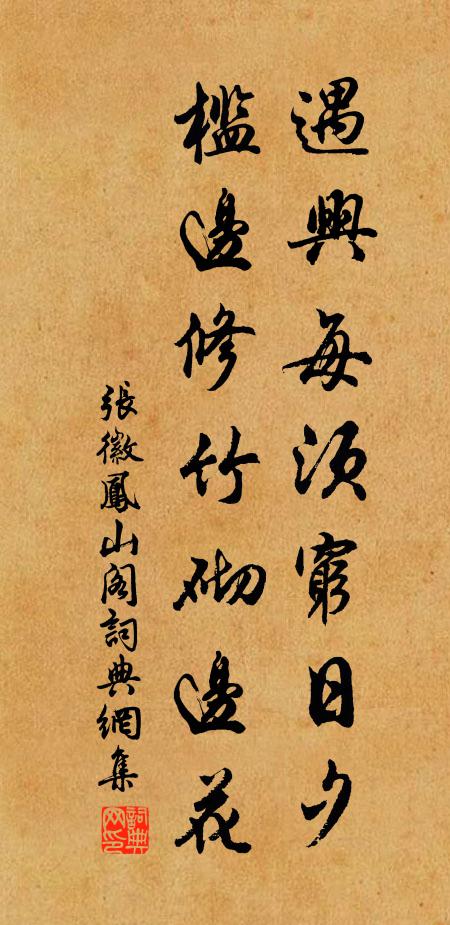 遇興每須窮日夕
檻邊修竹砌邊花
張徽鳳山閣詞典網集
詞典網印